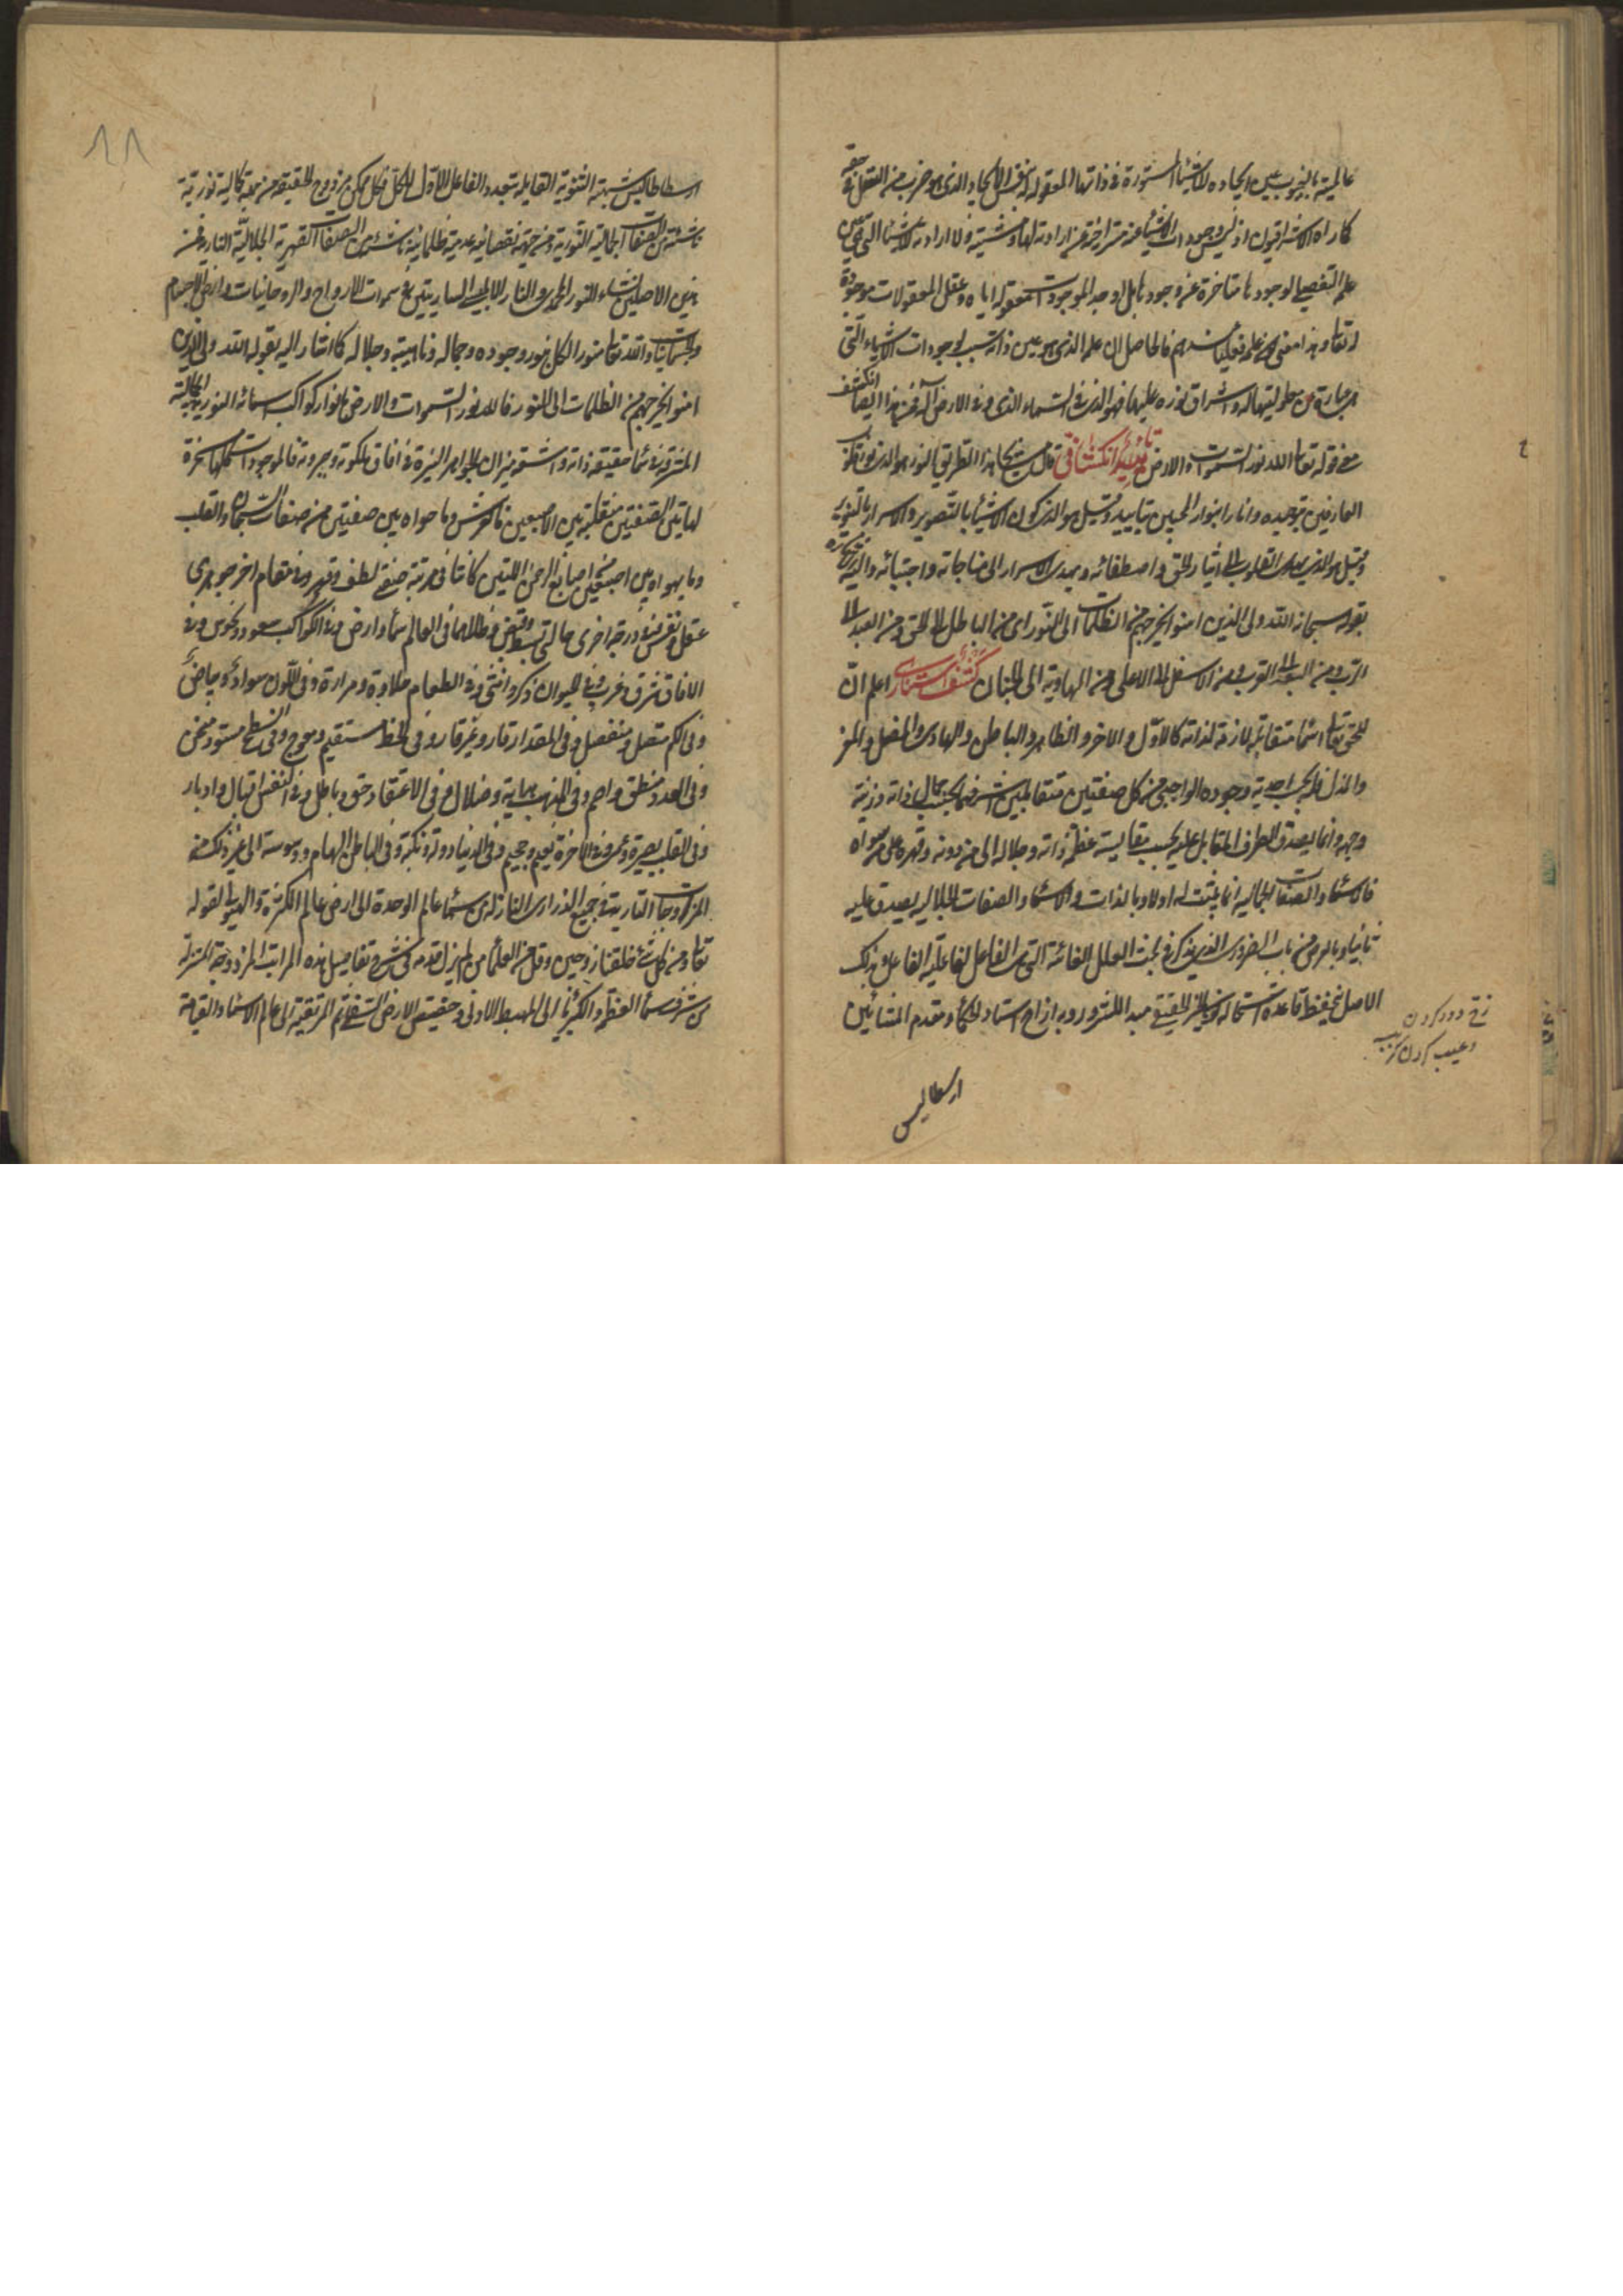 عالمية بالغيوب عين ايجاده للاشياء المستورة في ذواتها المعقولة بنفس الايجاد الذي هو ضرب من التعقل في حقه
كما راه الاشراقيون اذ ليس وجودات الاشياء عنه متراخية عن ارادته لها ومشيته ولا ارادته للاشياء التي هي عين
علمه التفصيلي لوجودها متاخرة عن وجودها بل اوجد الموجودات فعقوله اياه وعقل المعقولات موجودة
له تعالى وهذا معنى كون علمه فعليا عندهم فالحاصل ان علمه الذي هو عين ذاته سبب لوجودات الاشياء التي
هي عبارة عن معلوليتها له واشراق نوره عليها فهو الذي في السماء الذي وفي الارض اله فمن هذا ايضا انكشف
معنى قوله تعالى الله نور السموات والارض تاييد انكشافي قال بعض مشايخ هذا الطريق النور هو الذي نور قلوب
العارفين بتوحيده وانار انوار المحبين بتاييده وقيل هو الذي كون الاشياء بالتصوير والاسرار بالتنوير
وقيل هو الذي يهدي القلوب الى ايثار الحق واصطفائه ويهدي الاسرار الى مناجاته واجتبائه واليه الاشارة
بقوله سبحانه الله ولي الذين امنوا يخرجهم من الظلمات الى النور اي من الباطل الى الحق ومن العبد الى
الرب ومن البعد الى القرب ومن الاسفل الى الاعلى ومن الهاوية الى الجنان كشف استناري اعلم ان
للحق تعالى اسماء متقابلة لازمة لذاته كالاول والاخر والظاهر والباطن والهادي والمضل والمعز
والمذل فله بحسب احدية وجوده الواجبي من كل صفتين متقابلتين اشرفهما بحسب كمال ذاته وزينة
وجهه وانما يصدق الطرف المقابل عليه بحسب مقايسة عظمة ذاته وجلاله الى من دونه وقهره على من سواه
فالاسماء والصفات الجمالية انما يثبت له اولا وبالذات والاسماء والصفات الجلالية يصدق عليه
ثانيا وبالعرض من باب الضروري الذي يذكر في بحث العلل الغائية التي هي الفاعل لفاعلية الفاعل وبذلك
الاصل ينحفظ قاعدة استحالة كون الخير الحقيقي مبدء للشرور وبه ازاح استاد الحكماء ومقدم المشائين
زيف دور كردن
وعيب كردن
ارسطاطاليس
١١
ارسطاطاليس شبهة الثنوية القايلة بتعدد الفاعل الاول للكل فكل ممكن مزدوج الحقيقة من جهة كمالية نورية
ناشئة من الصفات الجمالية النورية ومن جهة نقصانية عدمية ظلمانية ناشئة من الصفات القهرية الجلالية النارية فمن
هذين الاصلين انشاء النور المحمدي والنار الابليسي الساريتين في سموات الارواح والروحانيات واراضي الاجسام
والجسمانيات والله تعالى منور الكل بنور وجوده وجماله وماهيته وجلاله كما اشار اليه بقوله الله ولي الذين
امنوا يخرجهم من الظلمات الى النور فالله نور السموات والارض بانوار كواكب اسمائه النورية الجمالية
المشرقة في سماء حقيقة ذاته واشعة نيران الجواهر النيرة في افاق ملكوته وجبروته فالموجودات كلها مسخرة
لهاتين الصفتين متقلبة بين الاصبعين فالعرش وما حواه بين صفتين من صفات الله والقلب
وما يهواه بين اصبعين من اصابع الرحمن اللتين كانتا في مرتبة صفتي لطف وقهر وفي مقام اخر جوهري
عقل ونفس وفي درجة اخرى حالتي بسط وقبض وظلالهما في العالم سماء وارض وفي الكواكب سعود ونحوس وفي
الافاق شرق وغرب وفي الحيوان ذكر وانثى وفي الطعام حلاوة ومرارة وفي اللون سواد وبياض
وفي الكم متصل ومنفصل وفي المقدار قار وغير قار وفي الخط مستقيم ومعوج وفي السطح مستو ومنحن
وفي العدد منطق واصم وفي المذهب هداية وضلال وفي الاعتقاد حق وباطل وفي النفس اقبال وادبار
وفي القلب بصيرة وعمى وفي الاخرة نعيم وجحيم وفي الدنيا دولة ونكبة وفي الباطن الهام ووسوسة الى غير ذلك من
المزدوجات السارية في جميع الذراري النازلة من سماء عالم الوحدة الى ارض عالم الكثرة والهيولى لقوله
تعالى ومن كل شيء خلقنا زوجين وقل من العلماء من لم يزل قدمه في شرح تفاصيل هذه المراتب المزدوجة المتنزلة
من شرف سماء العظمة والكبرياء الى المهبط الادنى وحضيض الارض السفلى ثم المرتقية الى عالم الاسماء والقيامة